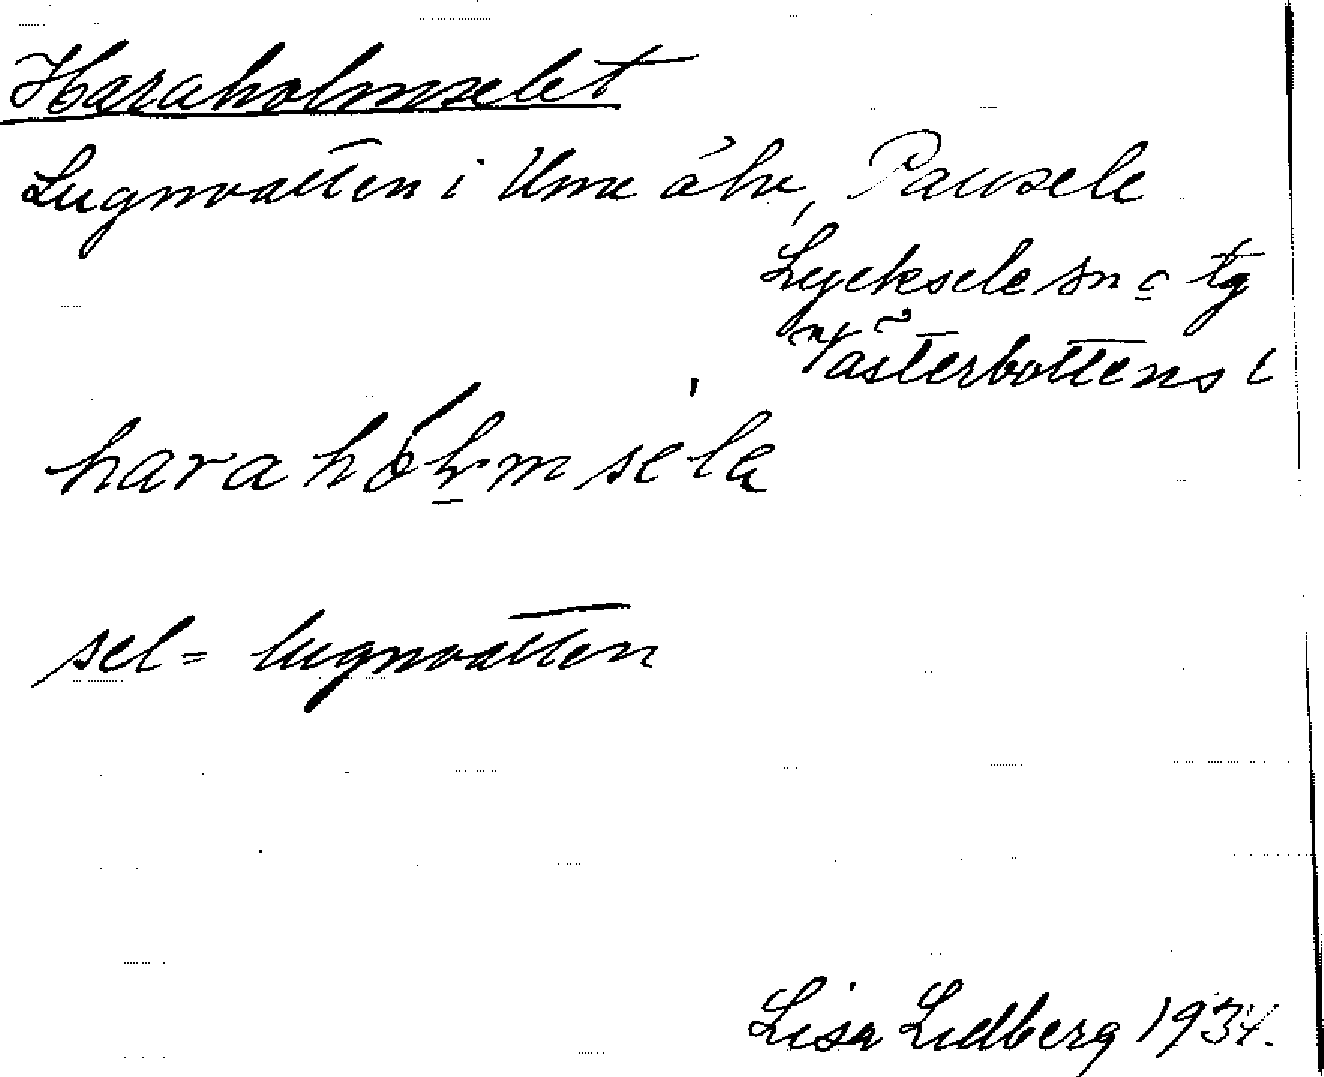 Haraholmselet
Lugnvatten i Ume älv, Pausele
Lycksele sn o tg
Västerbottens l
sel = lugnvatten
Lisa Lidberg 1934.